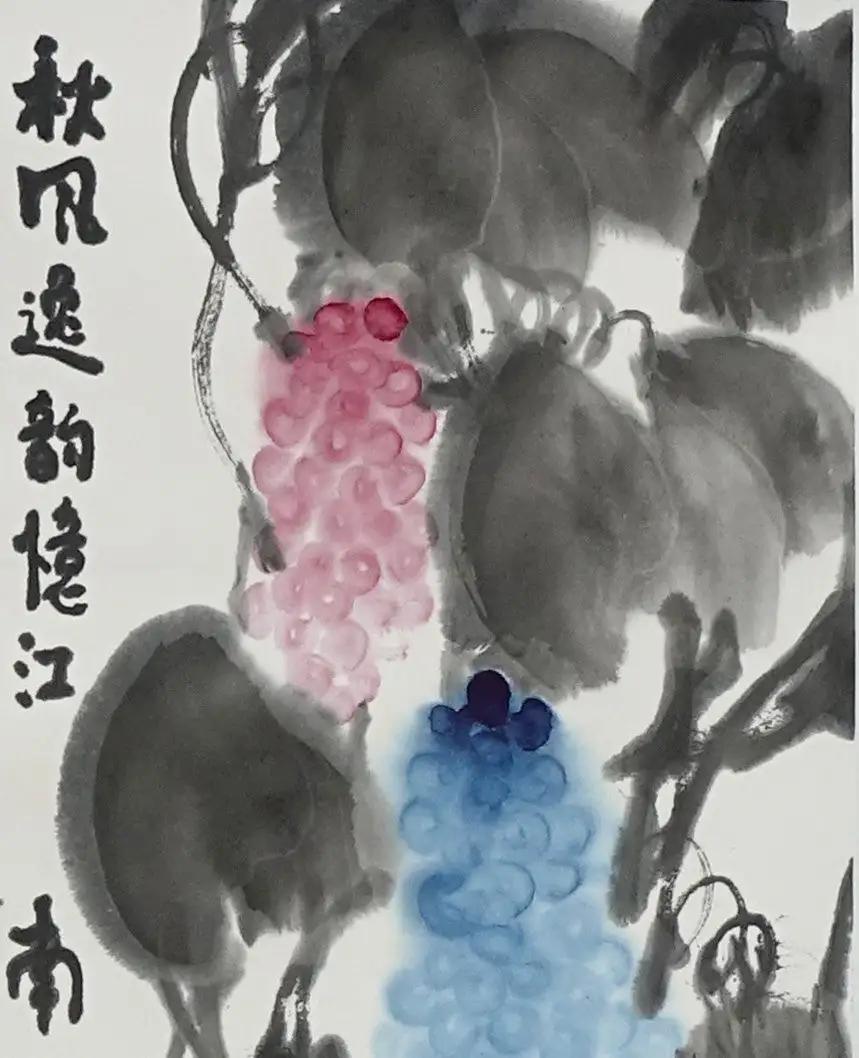 秋风逸韵憶江南